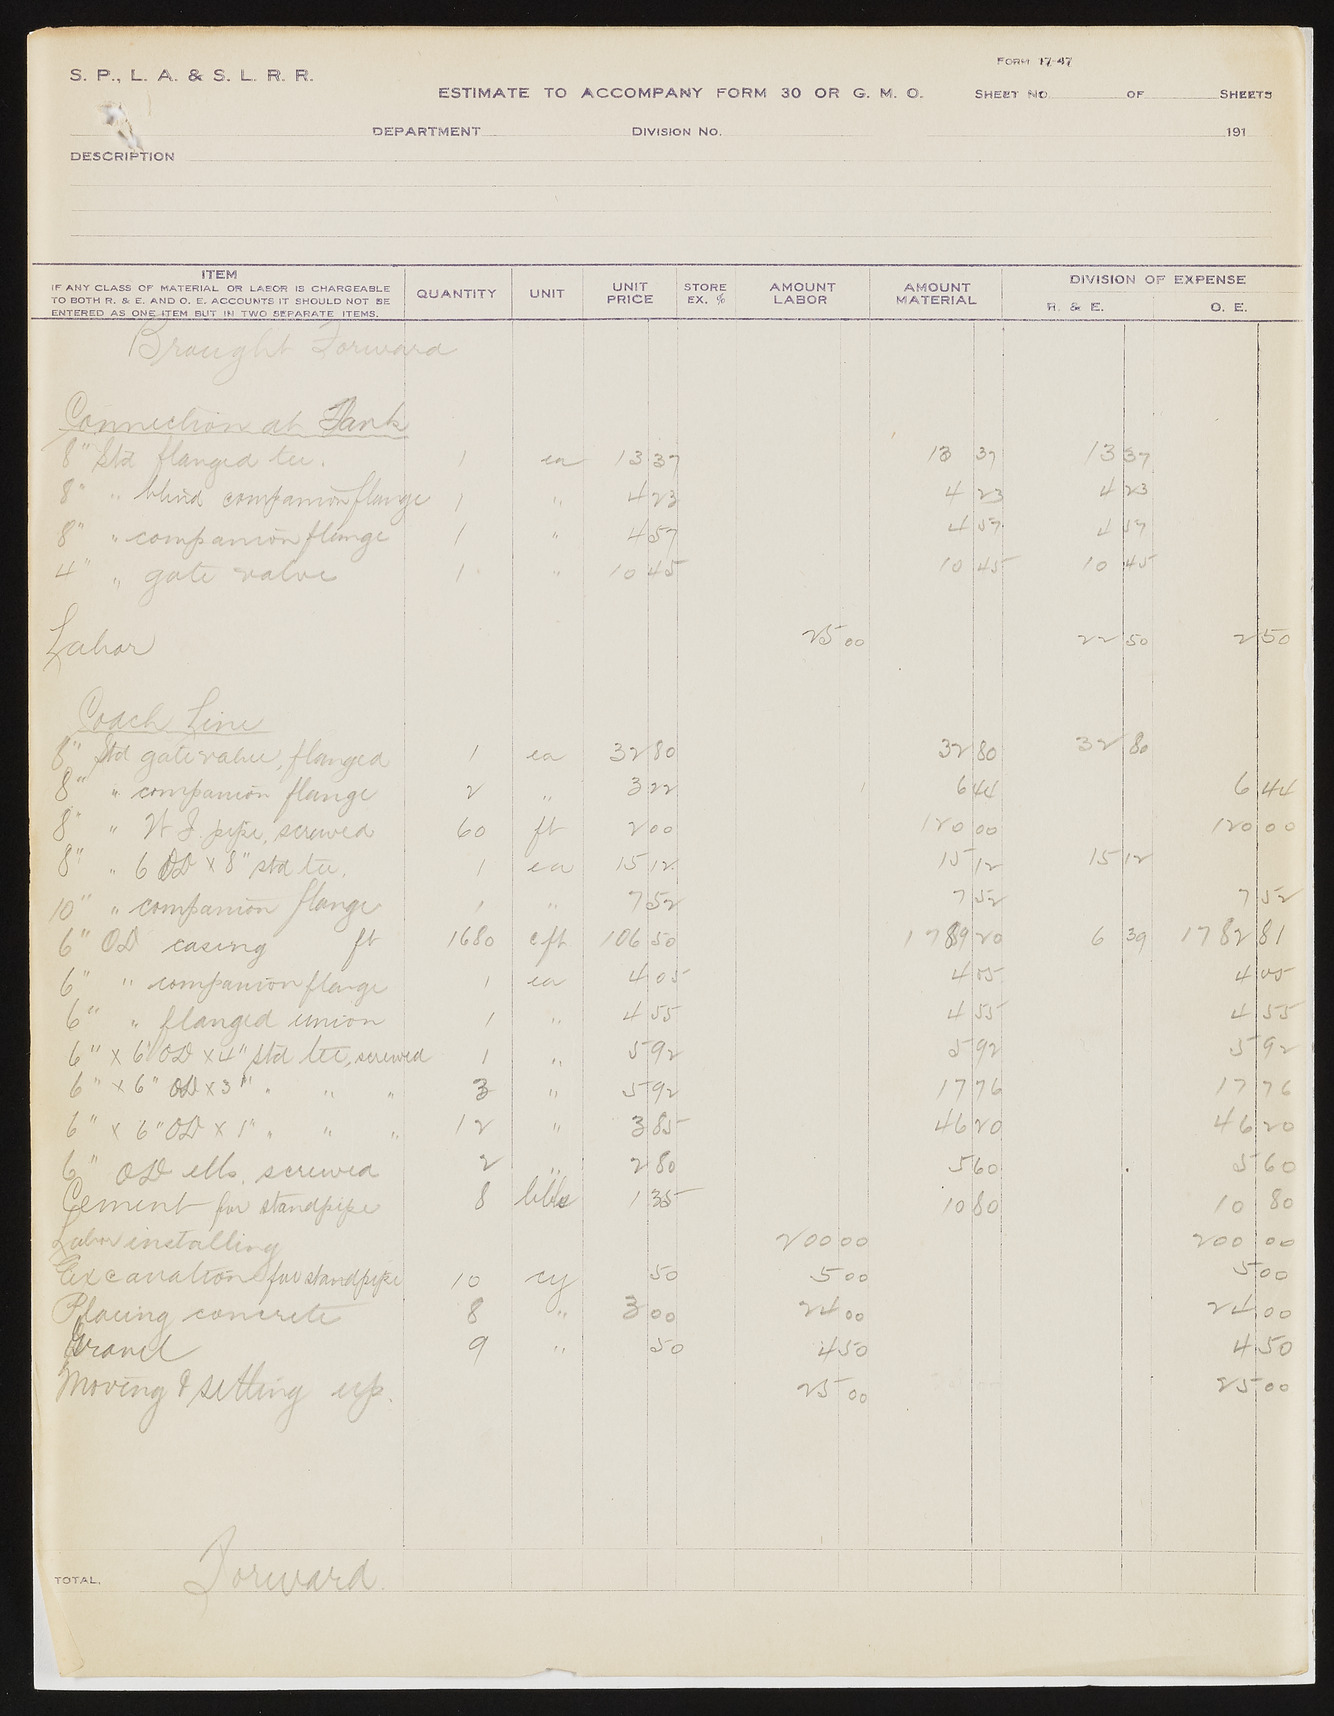 S. P., L. A. & S. L. R. R.
FORM 17-47
ESTIMATE TO ACCOMPANY FORM 30 OR G. M. O. SHEET NO. OF SHEETS
DEPARTMENT DIVISION NO. 191
DESCRIPTION
ITEM
IF ANY CLASS OF MATERIAL OR LABOR IS CHARGEABLE
TO BOTH R. & E. AND O. E. ACCOUNTS IT SHOULD NOT BE
ENTERED AS ONE ITEM BUT IN TWO SEPARATE ITEMS.
QUANTITY UNIT UNIT PRICE STORE EX. % AMOUNT LABOR AMOUNT MATERIAL DIVISION OF EXPENSE
R. & E. O. E.
Brought Forward
Connection at Tank
8" Std flanged tee. 1 ea 13 37 13 37 13 37
8" " blind companion flange 1 " 4 23 4 23 4 23
8" " companion flange 1 " 4 57 4 57 4 57
4" " gate valve 1 " 10 45 10 45 10 45
Labor 25 00 22 50 2 50
Coach Line
8" Std gate valve, flanged 1 ea 32 80 32 80 32 80
8" " companion flange 2 " 3 22 6 44 6 44
8" " W I. pipe, screwed 60 ft 2 00 120 00 120 00
8" " 6 OD x 8" std tee. 1 ea 15 12 15 12 15 12
10" " companion flange 1 " 7 52 7 52 7 52
6" OD casing ft 1680 cft 106 50 1789 20 6 39 1782 81
6" " companion flange 1 ea 4 05 4 05 4 05
6" " flanged union 1 " 4 55 4 55 4 55
6" x 6" OD x 4" std tee, screwed 1 " 5 92 5 92 5 92
6" x 6" OD x 3" " " " 3 " 5 92 17 76 17 76
6" x 6" OD x 1" " " " 12 " 3 85 46 20 46 20
6" OD ells, screwed 2 " 2 80 5 60 5 60
Cement for standpipe 8 bbls 1 35 10 80 10 80
Labor installing 200 00 200 00
Excavation for standpipe 10 cy 50 5 00 5 00
Placing concrete 8 " 3 00 24 00 24 00
Gravel 9 " 50 4 50 4 50
Moving & setting up. 25 00 25 00
TOTAL. Forward